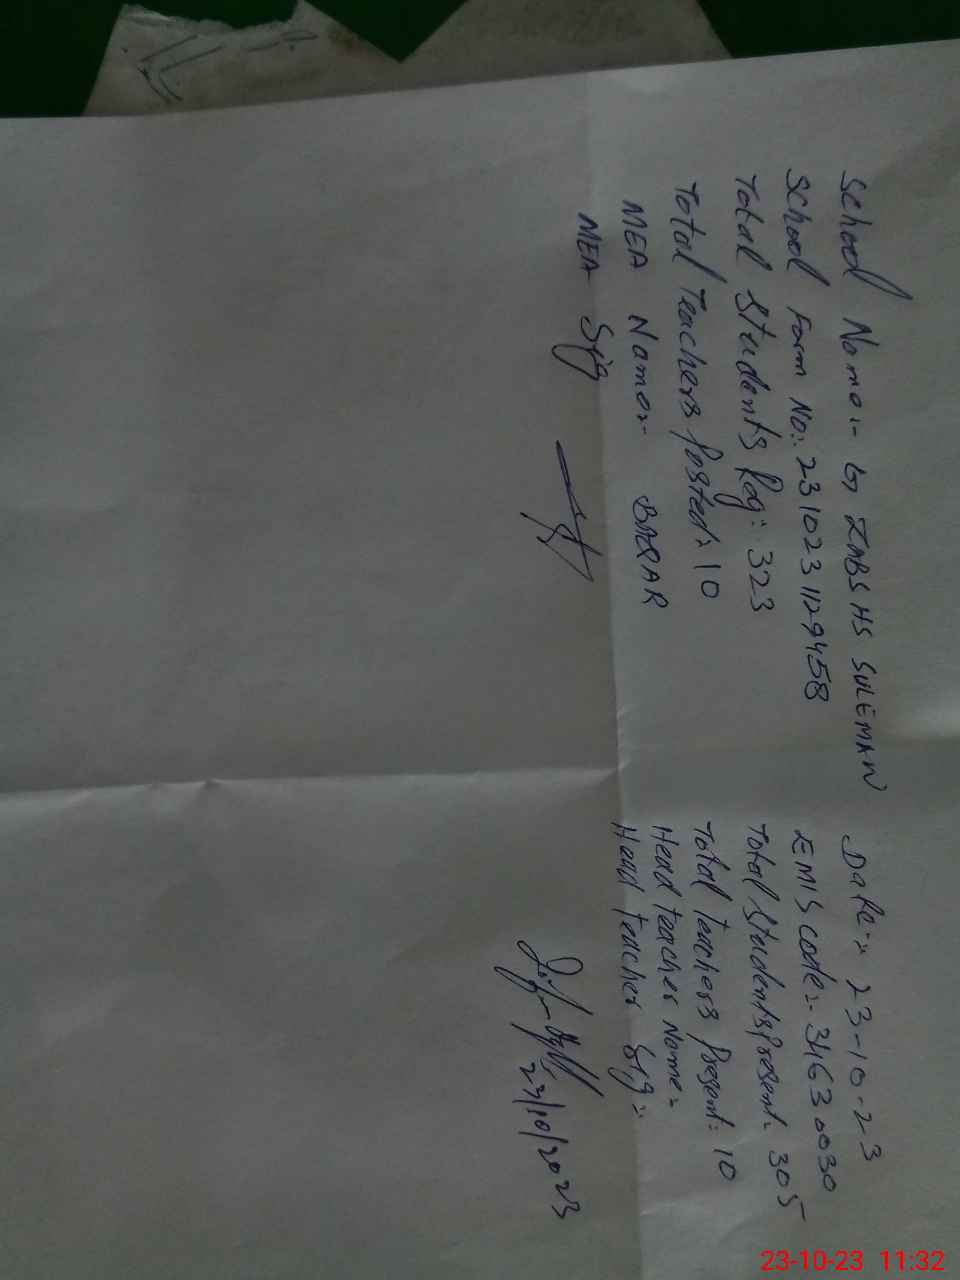 School Name:- G ZABS HS SULEMAN Date:- 23-10-23
School Form No:- 231023129458 EMIS code:- 31630030
Total Students Reg:- 323 Total Students Present:- 305
Total Teachers Posted:- 10 Total teachers Present:- 10
MEA Name:- BABAR Head teacher Name:-
MEA Sig Head teacher Sig:-
23/10/2023
23-10-23 11:32